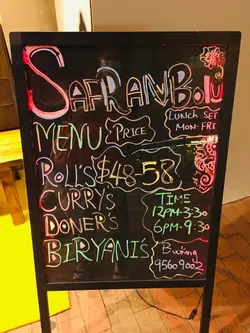 SAFRANBOLU
MENU PRICE
LUNCH SET
MON-FRI
ROLL'S $48-58
CURRY'S
DONER'S
BIRYANI'S
TIME
12PM-3:30
6PM-9:30
Booking
95609002